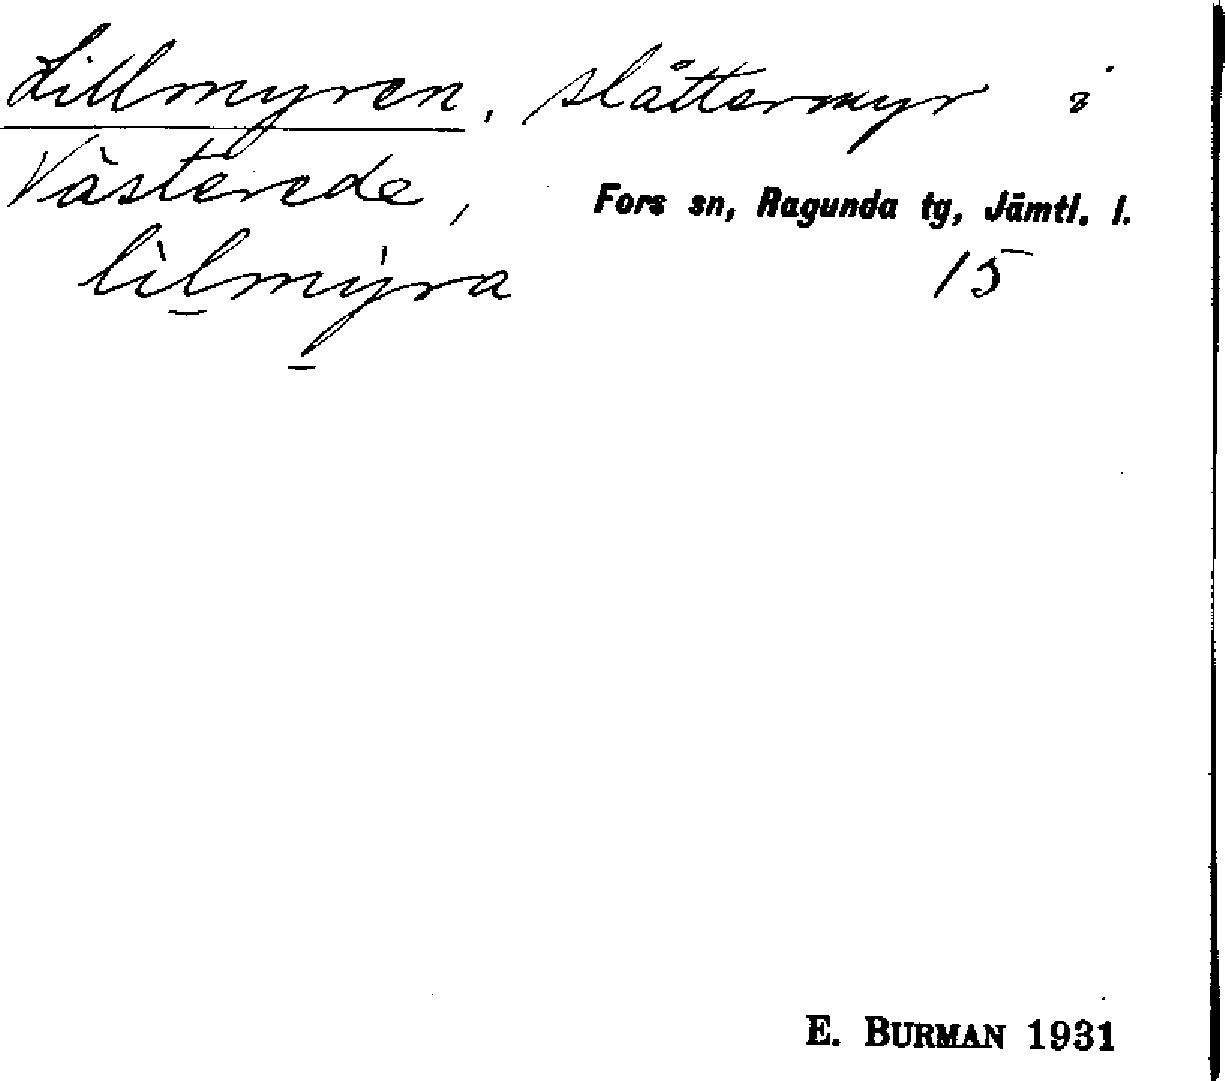 Lillmyren, slåttermyr i
Västerede, Fors sn, Ragunda tg, Jämtl. l.
lìlmýra 15
E. BURMAN 1931